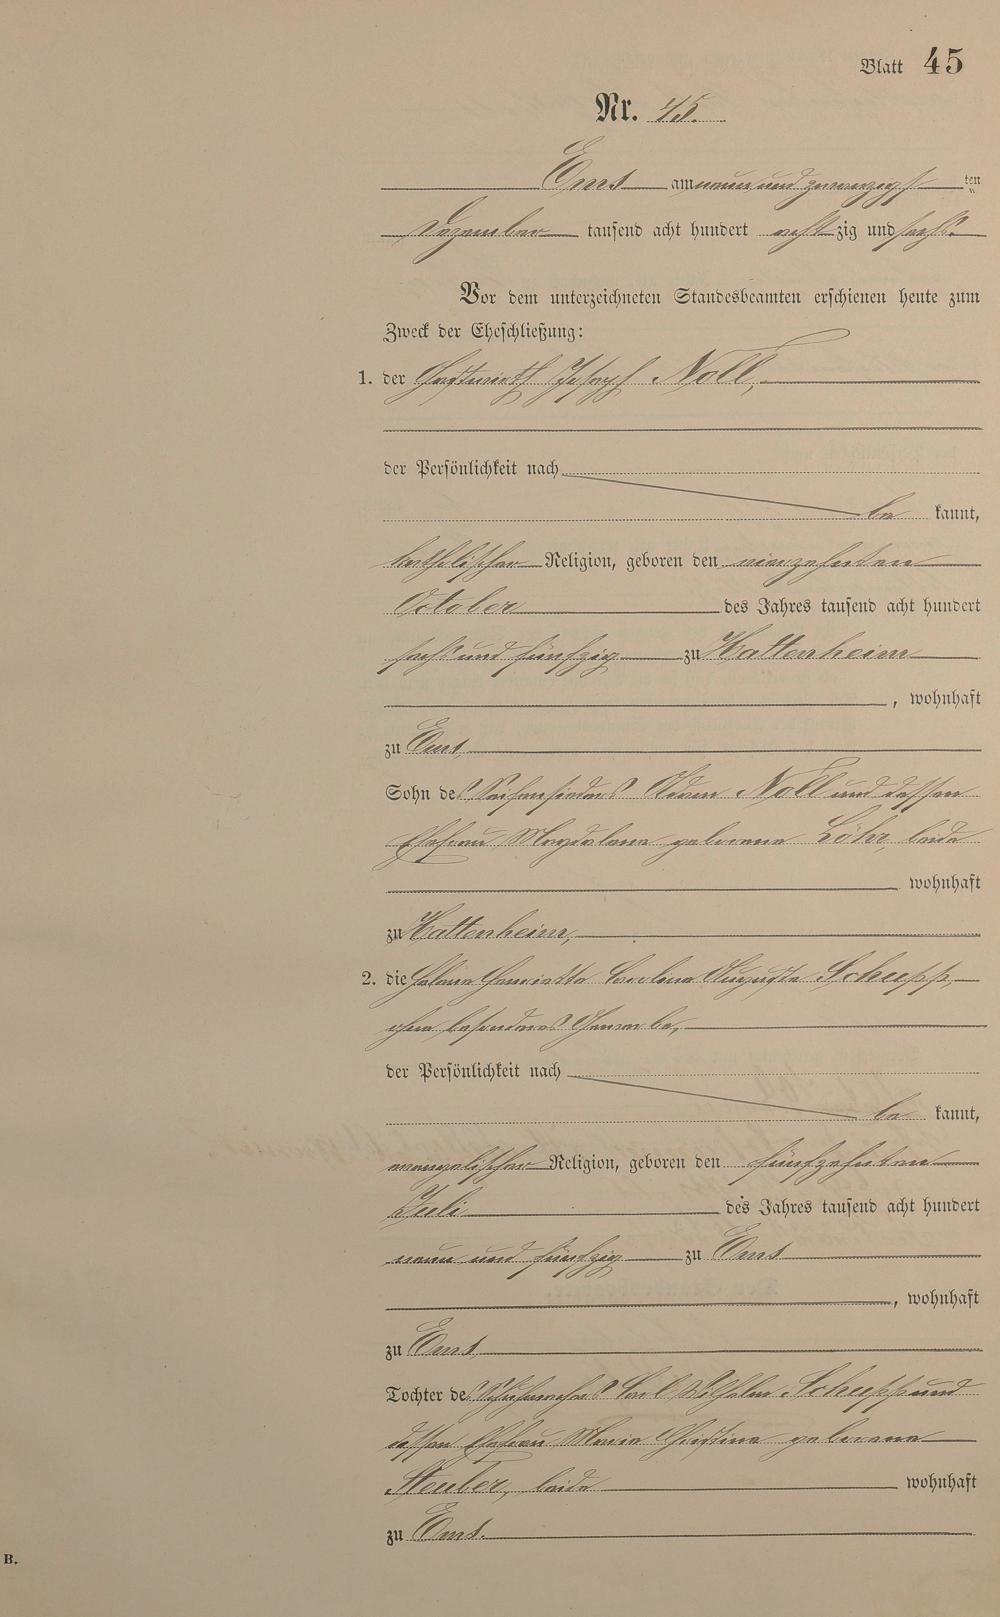 Blatt 45
Nr. 45.
Ems am neun und zwanzigsten
Dezember tausend acht hundert achtzig und sechs.
Vor dem unterzeichneten Standesbeamten erschienen heute zum
Zweck der Eheschließung:
1. der Gastwirth Joseph Noll,
der Persönlichkeit nach
be kannt,
katholischer Religion, geboren den vierzehnten
October des Jahres tausend acht hundert
sechs und fünfzig zu Hattenheim
, wohnhaft
zu Ems,
Sohn des Seifensieders Adam Noll und dessen
Ehefrau Magdalena geborene Löhr, beide
wohnhaft
zu Hattenheim,
2. die Helene Henriette Caroline Auguste Schupp,
ohne besonderes Gewerbe,
der Persönlichkeit nach
be kannt,
evangelischer Religion, geboren den fünfzehnten
Juli des Jahres tausend acht hundert
neun und fünfzig zu Ems
, wohnhaft
zu Ems,
Tochter des Schuhmachers Carl Wilhelm Schupp und
dessen Ehefrau Maria Christine geborene
Steuber, beide wohnhaft
zu Ems.
B.